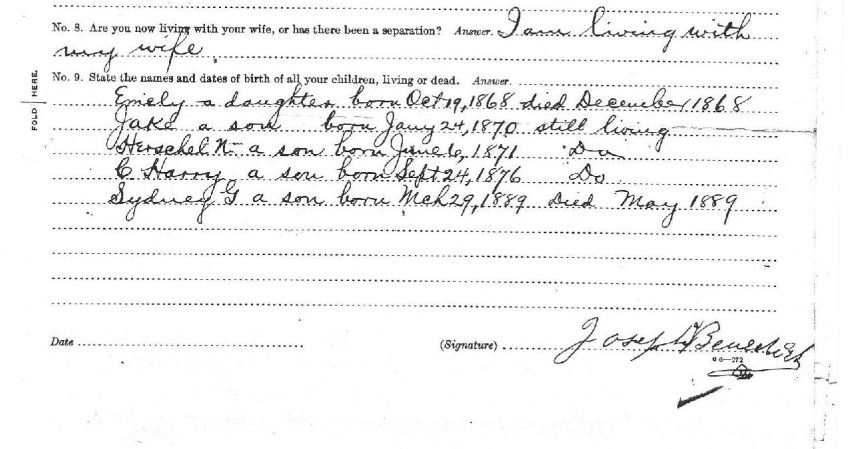 No. 8. Are you now living with your wife, or has there been a separation? Answer. I am living with
my wife.
No. 9. State the names and dates of birth of all your children, living or dead. Answer.
FOLD HERE.
Emely a daughter born Oct 19, 1868 died December 1868
Jake a son born Jany 24, 1870 still living
Herschel N a son born June 6, 1871 Do
C Harry a son born Sept 24, 1876 Do
Sydney G a son born Mch 29, 1889 died May 1889
Date
(Signature) Joseph
6-272